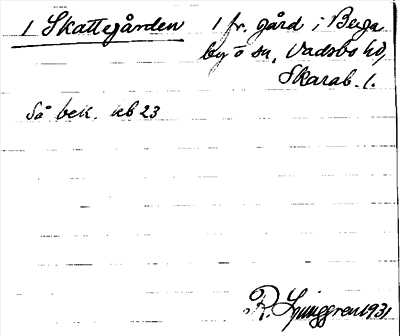 1 Skattegården 1 fr. gård i Berga
by o sn, Vadsbo hd,
Skarab. l.
Så bek. kb 23
R. Ljunggren 1931